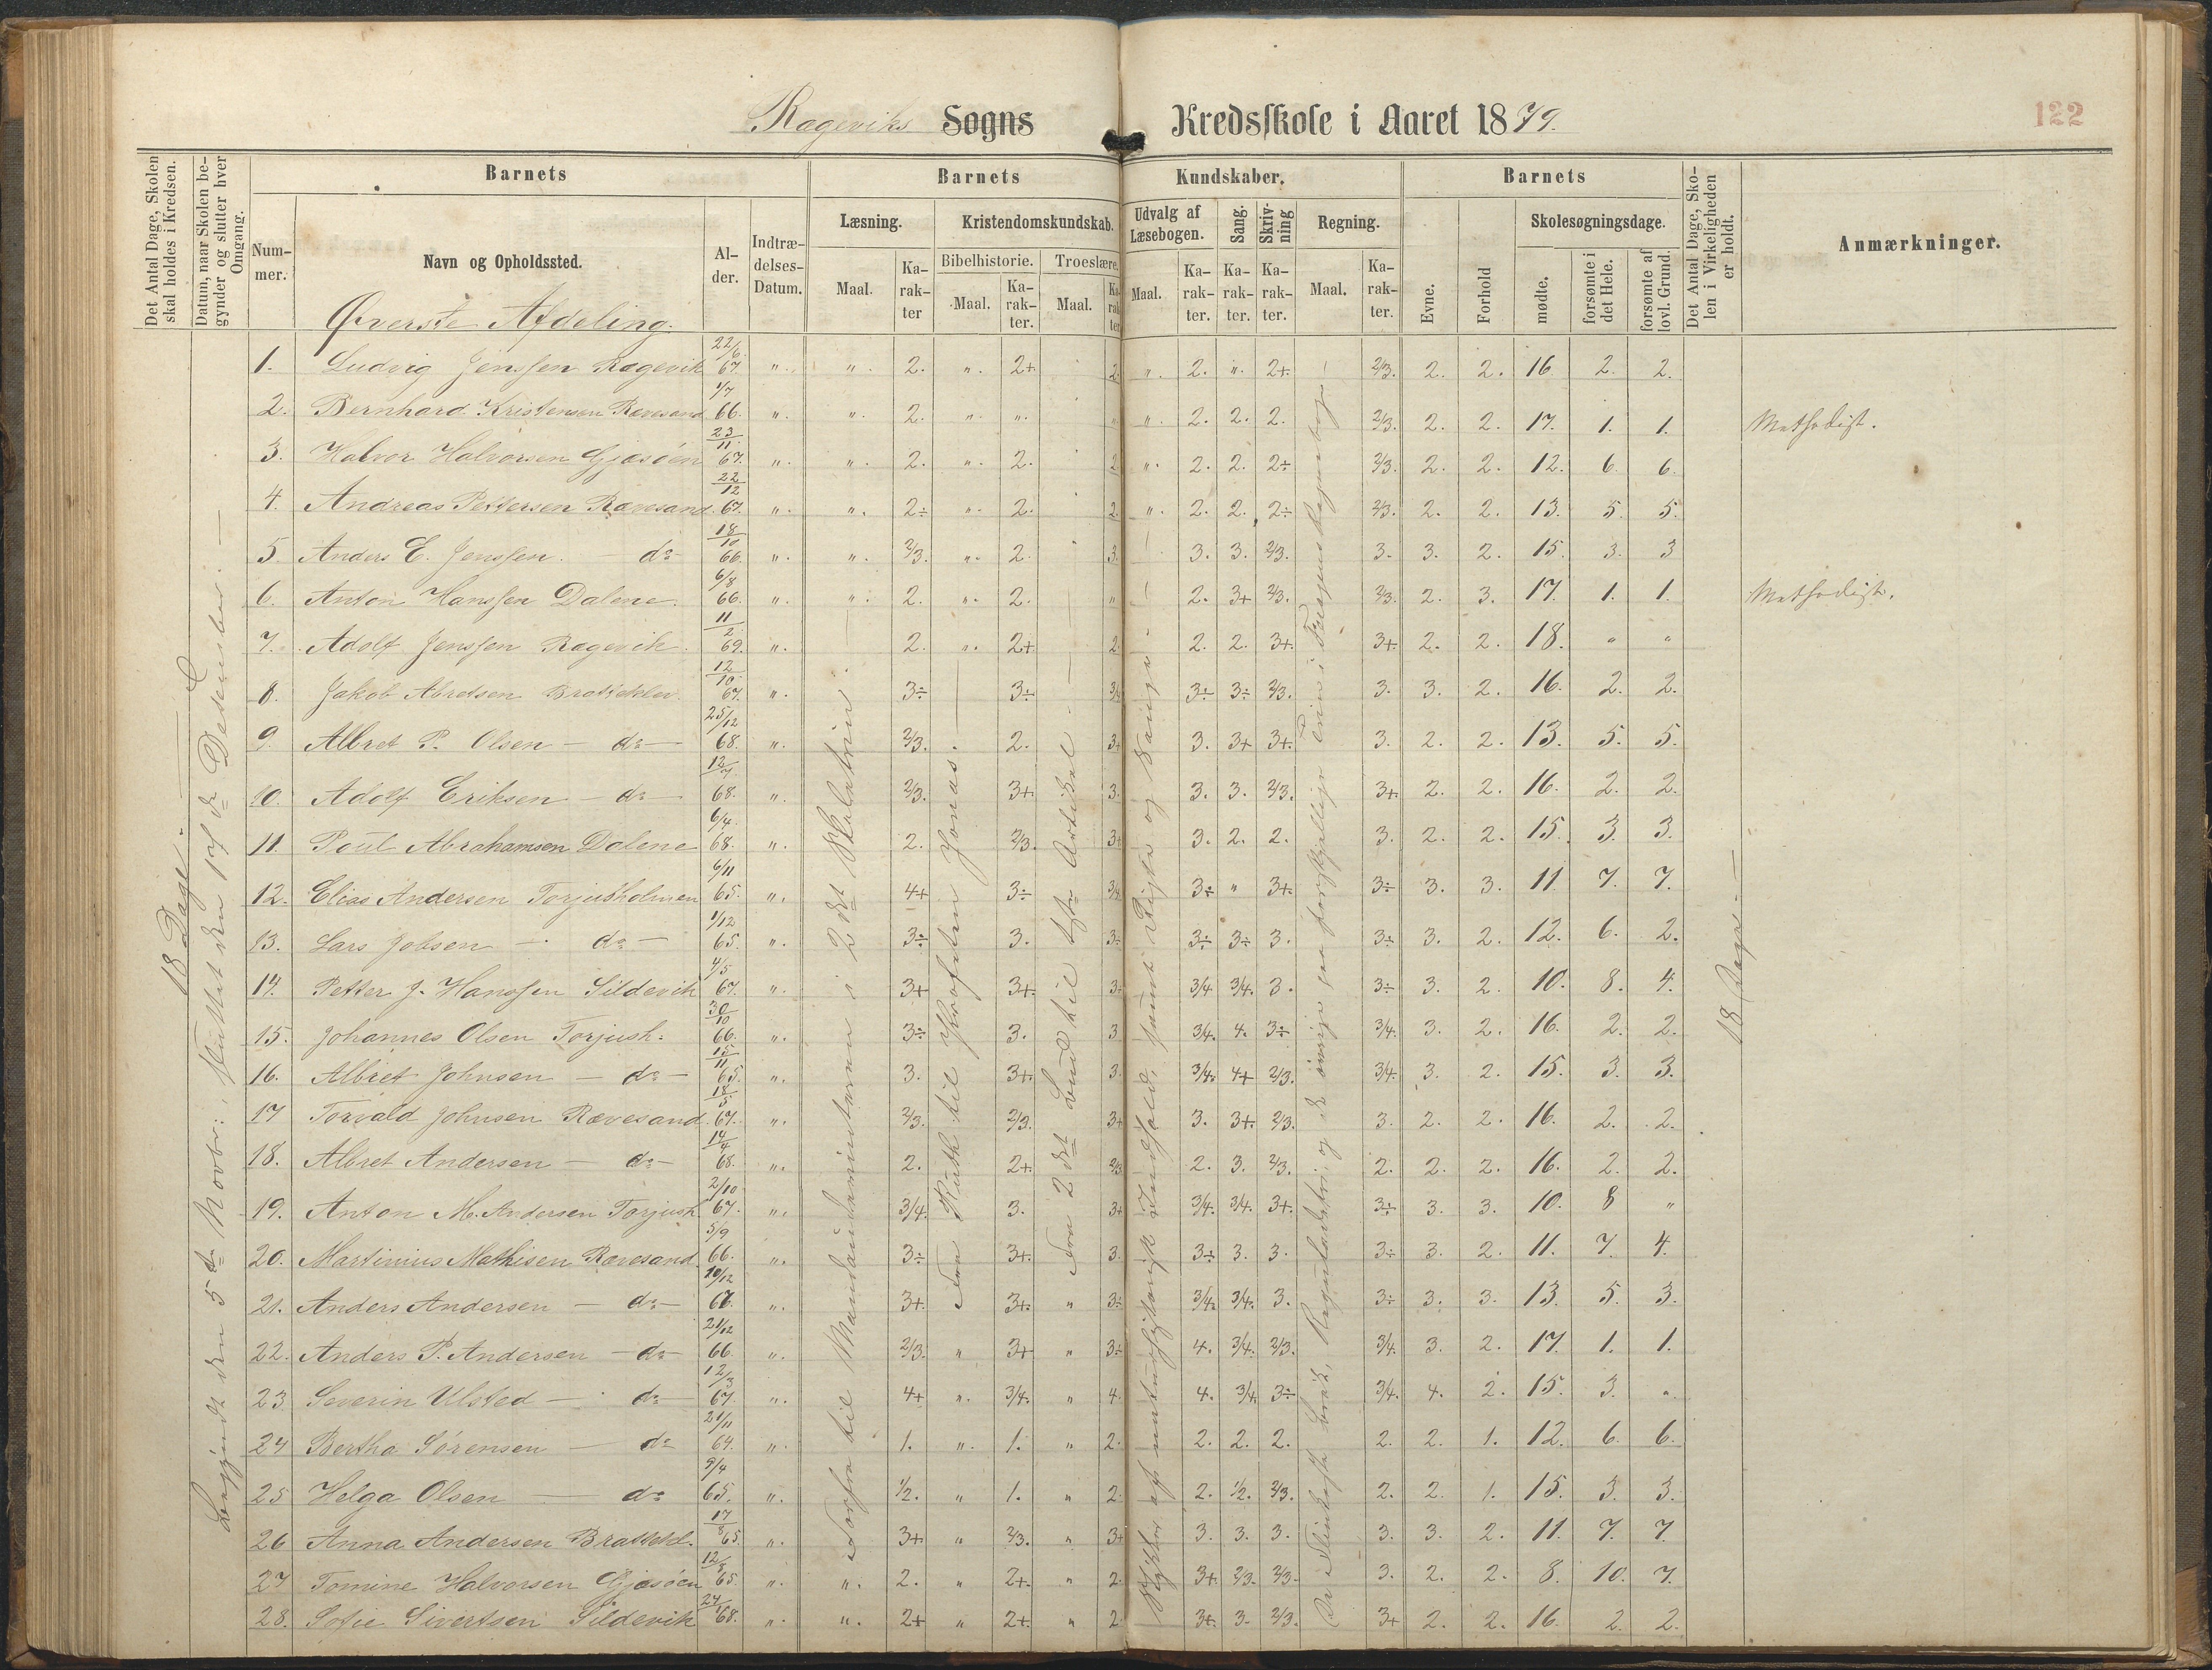 Rageviks Sogns Kredsskole i Aaret 1879.
122
Det Antal Dage, Skolen skal holdes i Kredsen.
Datum, naar Skolen begynder og slutter hver Omgang.
Barnets
Barnets Kundskaber.
Barnets
Det Antal Dage, Skolen i Virkeligheden er holdt.
Anmærkninger.
Nummer.
Navn og Opholdssted.
Alder.
Indtrædelses-Datum.
Læsning.
Kristendomskundskab.
Udvalg af Læsebogen.
Sang.
Skrivning
Regning.
Evne.
Forhold
Skolesøgningsdage.
Maal.
Karakter
Bibelhistorie.
Troeslære.
Maal.
Karakter.
Maal.
Karakter
Maal.
Karakter.
Karakter.
Karakter.
Maal.
Karakter.
mødte.
forsømte i det Hele.
forsømte af lovl. Grund.
Øverste Afdeling.
18 Dage.
Begyndt den 5te Novbr:, sluttet den 17de Desember.
18 Dage.
1. Ludvig Jenssen Ragevik 22/6 67. ". ". 2. ". 2+ 2 ". 2. ". 2+. 2/3. 2. 2. 16 2. 2.
2. Bernhard Kristensen Rævesand 1/7 66. ". ". 2. ". ". " ". 2. 2. 2. 2/3. 2. 2. 17. 1. 1. Methodist.
3. Halvor Halvorsen Gjæsøen 23/11 67. ". ". 2. ". 2. 2 ". 2. 2. 2÷ 2/3. 2. 2. 12. 6. 6.
4. Andreas Pettersen Rævesand 22/12 67. ". ". 2÷ ". 2. 2. ". 2. 2. 2÷ 2/3. 2. 2. 13. 5. 5.
5 Anders E. Jenssen. do 18/10 66. ". ". 2/3. ". 2. 3. 3. 3. 2/3. 3. 3. 2. 15. 3. 3
6. Anton Hanssen Dalene. 6/8 66. ". ". 2. ". 2. " 2. 3+ 2/3. 2/3. 2. 3. 17. 1. 1. Methodist.
7. Adolf Jenssen Ragevik. 11/2 69. ". 2. ". 2+ 2. 2. 2. 3+. 3+. 2. 2. 18. " "
8. Jakob Abretsen Bratteklev 12/10 67. ". 3÷ 3÷ 3/4 3÷ 3÷ 2/3. 3. 3. 2. 16. 2. 2.
9. Albret P. Olsen — do — 25/12 68. ". 2/3. 2. 3+ 3. 3+ 3+. 3. 2. 2. 13. 5. 5.
10. Adolf Eriksen — do — 12/7 68. ". 2/3. 3+. 3. 3. 3. 2/3. 3+. 2. 2. 16. 2. 2.
11. Poul Abrahamsen Dalene 6/4 68. ". 2. 2/3. 3+ 3. 2. 2. 3. 2. 2. 15. 3. 3.
12. Elias Andersen Torjusholmen 6/11 65. ". 4+ 3÷ 3/4 3÷ " 3+. 3÷ 3. 3. 11 7. 7.
13. Lars Jobsen — do — 1/12 65. ". 3÷ 3. 3÷ 3÷ 3÷ 3. 3÷ 3. 2. 12. 6. 2.
14. Petter J. Hanssen Sildevik 4/5 67. ". 3+ 3+. 3÷ 3/4 3/4. 3. 3÷ 3. 2. 10. 8. 4.
15. Johannes Olsen Torjush. 30/10 66. ". 3÷ 3. 3 3/4. 4. 3÷ 3/4. 3. 2. 16. 2. 2.
16. Albret Johnsen — do — 15/11 65. ". 3. 3+. 3. 3/4. 4+ 2/3. 3/4. 3. 2. 15. 3. 3.
17 Torvald Johnsen Rævesand 18/5 67. ". 2/3. 2/3. 3+ 3. 3+. 2/3. 3. 2. 2. 16. 2. 2.
18. Albret Andersen — do — 14/4 68. ". 2. 2+. 2/3 2. 3. 2/3. 2. 2. 2. 16. 2. 2.
19. Anton M. Andersen Torjush 2/10 67. ". 3/4. 3. 3+ 3/4. 3/4. 3+. 3÷ 3. 3. 10. 8 "
20. Martinius Mathisen Rævesand 5/9 66. ". 3÷ 3+. 3. 3÷ 3. 3. 3÷ 3. 2. 11. 7. 4.
21. Anders Andersen — do — 10/12 67. ". 3+. 3+. " 3÷ 3/4. 3/4. 3. 3÷ 3. 3. 13. 5. 3.
22. Anders P. Andersen — do 21/12 66. ". 2/3. " 3+ " 3÷ 4. 3/4. 2/3. 3/4. 3. 2. 17. 1. 1.
23 Severin Ulsted — do 12/3 67. ". 4+ ". 3/4. " 4. 4. 3/4 3÷ 3/4. 4. 2. 15. 3. "
24 Bertha Sørensen — do 21/11 64. ". 1. ". 1. " 2. 2. 2. 2. 2. 2. 1. 12. 6. 6.
25 Helga Olsen — do 9/4 65. ". 1/2. " 1. " 2. 2. 1/2. 2/3. 2. 2. 1. 15. 3. 3.
26 Anna Andersen Brattekl. 17/8 65. ". 3+ " 2/3. " 3+ 3. 3. 3. 3. 3. 2. 11. 7. 7
27 Tomine Halvorsen Gjæsøen 12/8 65. ". ". 2. " 2+. " 2. 3+. 2/3. 2/3. 3. 2. 2. 8. 10. 7.
28. Sofie Sivertsen Sildevik 24/1 68. ". ". 2+ " 2+. " 2 3+. 3. 2/3. 3+ 2. 2. 16. 2. 2.
Forfra til Mandauthaminstoren i 2det Skoletrin.
Fra Ruth til Profeten Jonas
Fra 2det Bud til 1ste Artikel